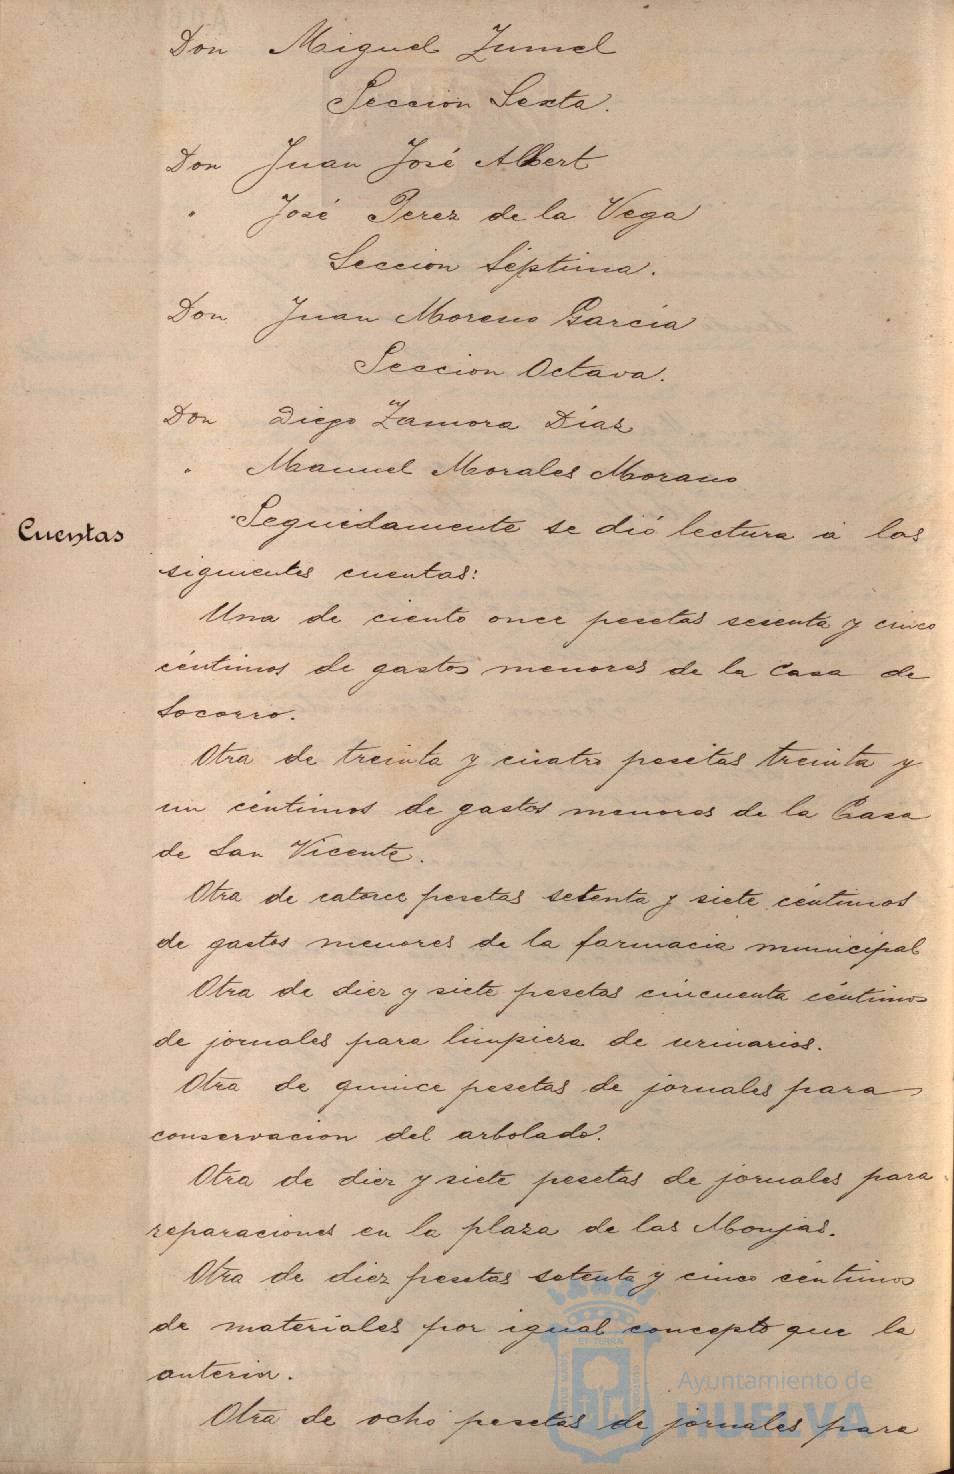 Don Miguel Zumel
Seccion Sexta.
Don Juan José Albert
" José Perez de la Vega
Seccion Séptima.
Don Juan Moreno García
Seccion Octava.
Don Diego Zamora Díaz
" Manuel Morales Morano
Cuentas
Seguidamente se dió lectura á las
siguientes cuentas:
Una de ciento once pesetas sesenta y cinco
céntimos de gastos menores de la Casa de
Socorro.
Otra de treinta y cuatro pesetas treinta y
un céntimos de gastos menores de la Casa
de San Vicente.
Otra de catorce pesetas setenta y siete céntimos
de gastos menores de la farmacia municipal
Otra de diez y siete pesetas cincuenta céntimos
de jornales para limpieza de urinarios.
Otra de quince pesetas de jornales para
conservacion del arbolado.
Otra de diez y siete pesetas de jornales para
reparaciones en la plaza de las Monjas.
Otra de diez pesetas setenta y cinco céntimos
de materiales por igual concepto que la
anterior.
Otra de ocho pesetas de jornales para
Ayuntamiento de
HUELVA